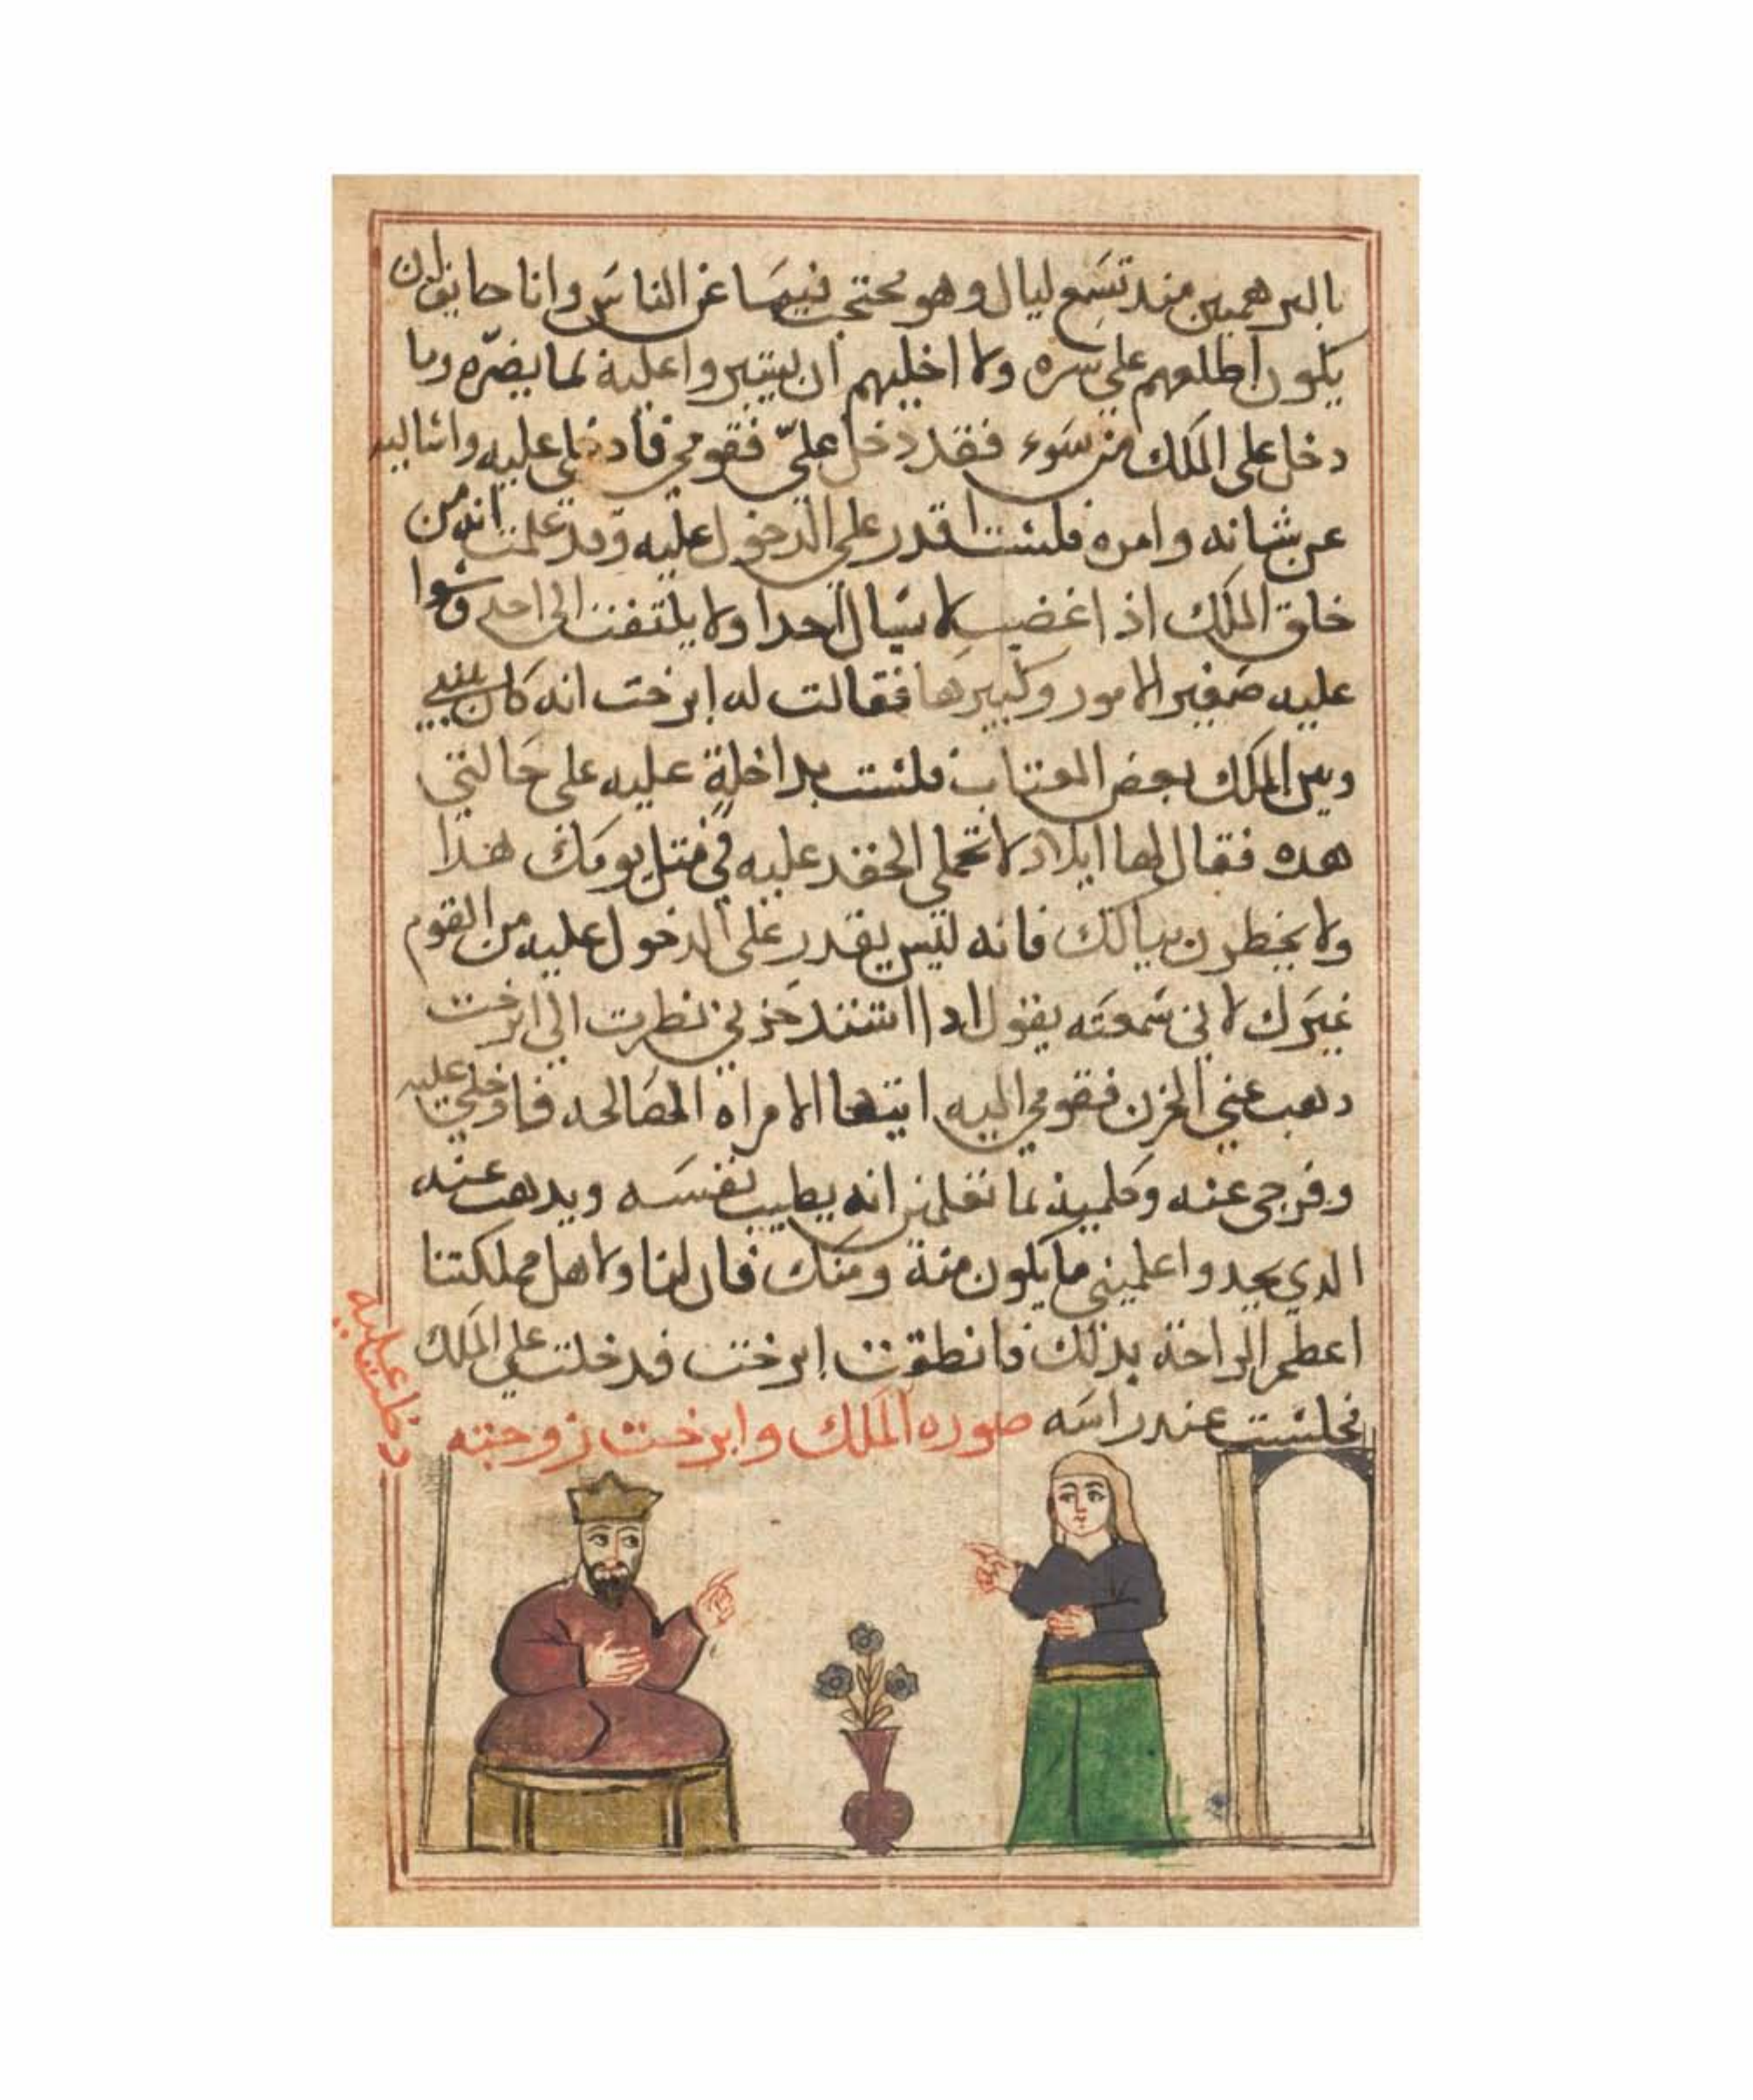 بالبرهميين منذ تسع ليال وهو محتجب فيها عن الناس وانا خايف ان
يكون اطلعهم على سره ولا اخليهم ان يشيروا عليه بما يضره وما
دخل على الملك من سوء فقد دخل عليّ فقومي فادخلي عليه واساليه
عن شانه وامره فلست اقدر على الدخول عليه وقد علمت انه من
خلق الملك اذا غضب لا يسال احدا ولا يلتفت الى احد وسوا
عليه صغير الامور وكبيرها فقالت له ايرخت انه كان بيني
وبين الملك بعض العتاب فلست بداخلة عليه على حالتي
هده فقال لها ايلاد لا تحملي الحقد عليه في متل يومك هدا
ولا يخطرن ببالك فانه ليس يقدر على الدخول عليه من القوم
غيرك لاني سمعته يقول ادا اشتد حزني نظرت الى ايرخت
دهب عني الحزن فقومي اليه ايتها الامراه الصالحه فادخلي عليه
وفرجي عنه وكلميه بما تعلمين انه يطيب نفسه ويدهب عنه
الدي يجد واعلميني ما يكون منه ومنك فان لنا ولاهل مملكتنا
اعظم الراحة بذلك فانطلقت ايرخت فدخلت على الملك
فجلست عند راسه صوره الملك وايرخت زوجته
داخلت عليه